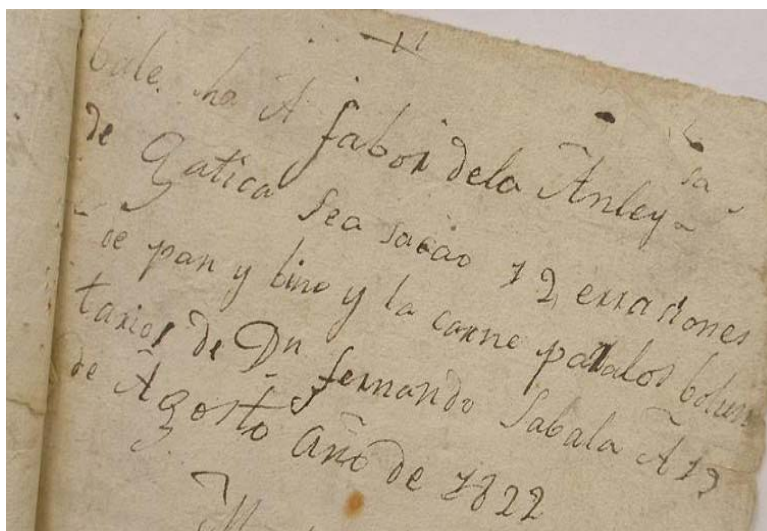 bale. ha A fabor dela Anley-
sa
de Gatica sea sacao 12 erraciones
de pan y bino y la carne paralos bolun
tarios de Dn fernando Sabala A 13
de Agosto año de 1822